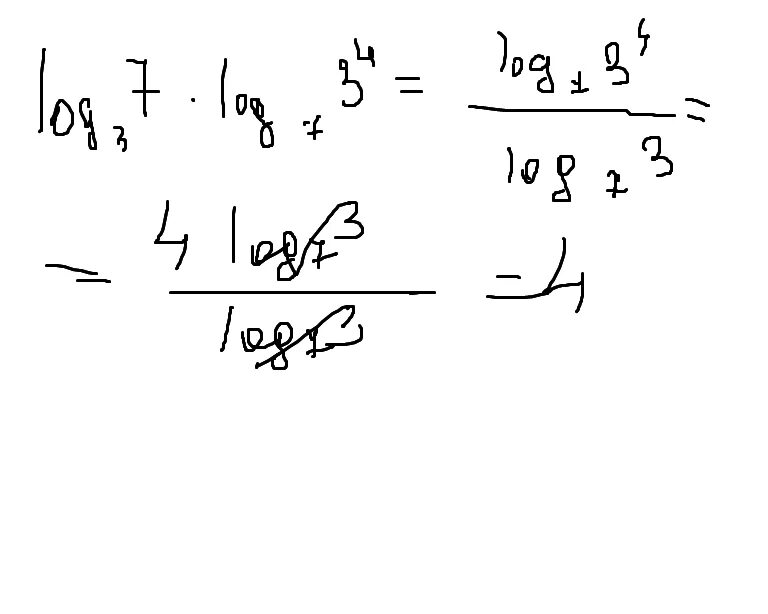 log₃7 · log₇3⁴ = log₇3⁴ / log₇3 =
= 4 log₇3 / log₇3 = 4